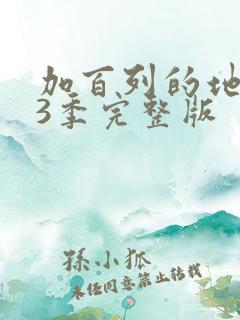 加百列的地
3季完整版
孫小狐
未经同意禁止转载